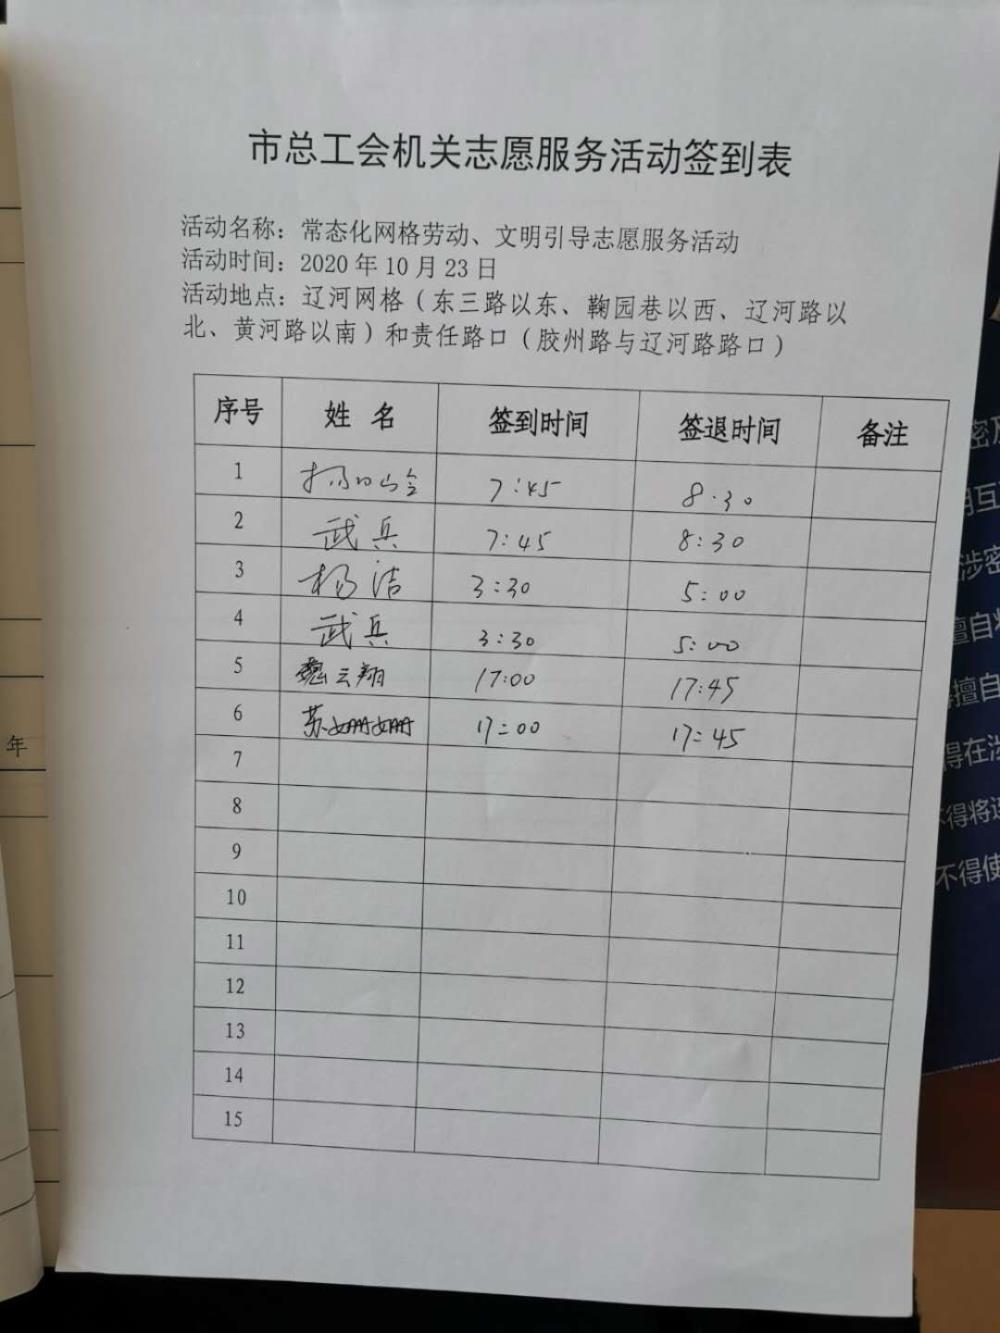 市总工会机关志愿服务活动签到表
活动名称：常态化网格劳动、文明引导志愿服务活动
活动时间：2020年10月23日
活动地点：辽河网格（东三路以东、鞠园巷以西、辽河路以
北、黄河路以南）和责任路口（胶州路与辽河路路口）
序号 姓 名 签到时间 签退时间 备注
1 7:45 8:30
2 武兵 7:45 8:30
3 杨洁 3:30 5:00
4 武兵 3:30 5:00
5 魏云翔 17:00 17:45
6 苏姗姗 17:00 17:45
7
8
9
10
11
12
13
14
15
年
密及
用互
涉密
擅自
擅自
得在涉
不得将
不得使